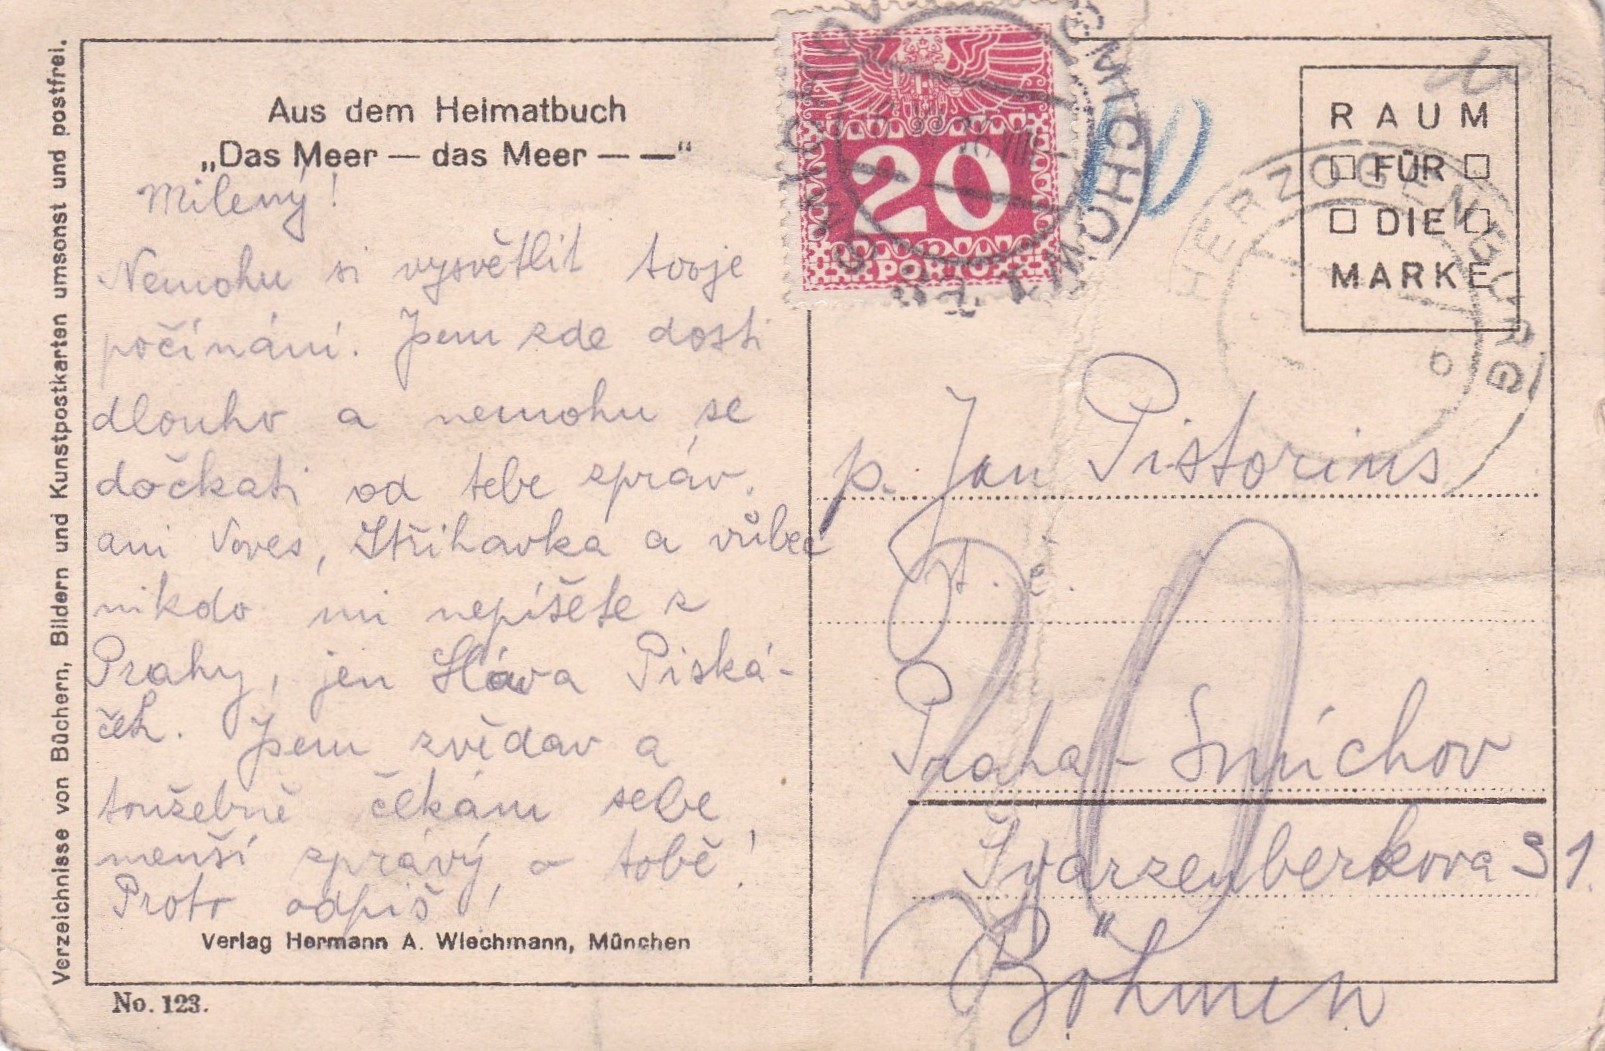 Verzeichnisse von Büchern, Bildern und Kunstpostkarten umsonst und postfrei.
Aus dem Heimatbuch
„Das Meer — das Meer — —"
Milený!
Nemohu si vysvětlit tvoje
počínání. Jsem zde dosti
dlouho a nemohu se
dočkati od tebe zpráv,
ani Voves, Střihavka a vůbec
nikdo mi nepíšete z
Prahy, jen Sláva Piská-
ček. Jsem zvědav a
toužebně čekám sebe
menší zprávy, o tobě!
Proto odpiš!
Verlag Hermann A. Wiechmann, München
No. 123.
20
PORTO
10
RAUM
FÜR
DIE
MARKE
HERZOGENBURG
b
p. Jan Pistorius
st. č.
20
Praha - Smíchov
Švarzenberkova 31.
Böhmen